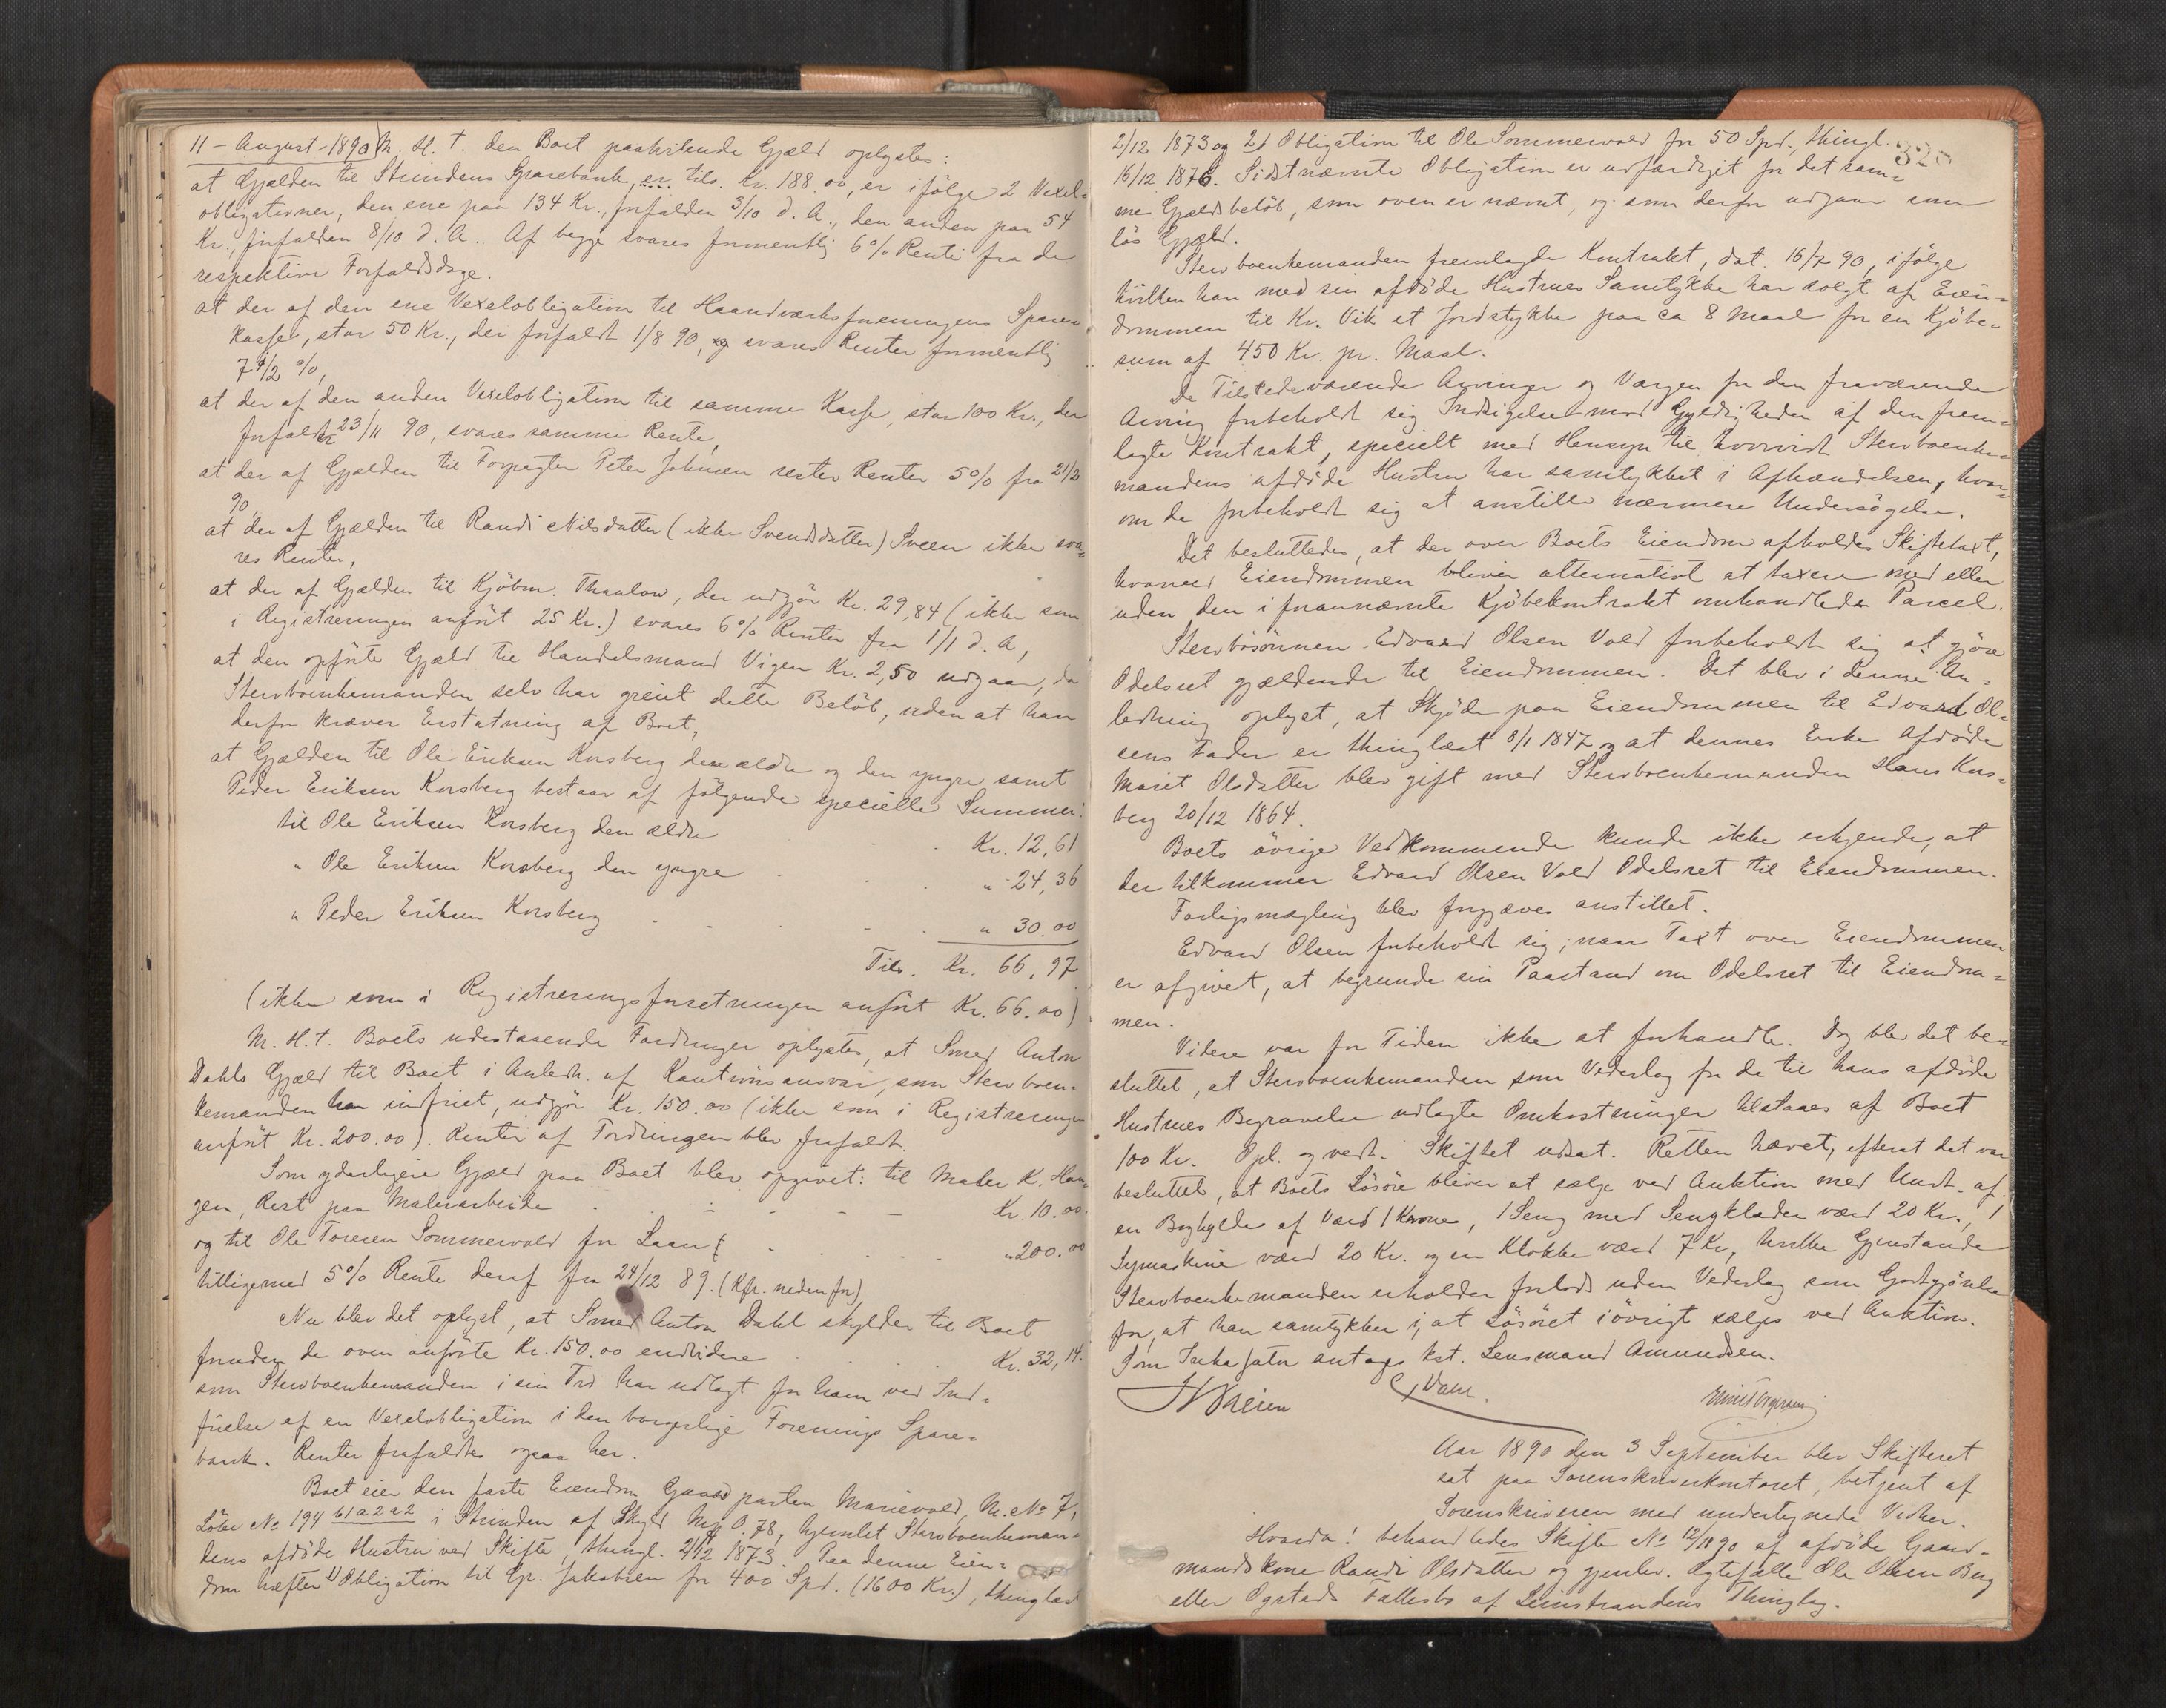 11 – August – 1890) M. H. t. den Boet paahvilende Gjæld oplystes:
at Gjælden til Strindens Sparebank, er tils. Kr. 188.00, er ifölge 2 Vexel-
obligationer, den ene paa 134 Kr., forfalden 3/10 d. A., den anden paa 54
Kr., forfalden 8/10 d. A. Af begge svares formentlig 6% Rente fra de
respektive Forfaldsdage.
at der af den ene Vexelobligation til Haandværksforeningens Spare-
kasse, stor 50 Kr., der forfaldt 1/8 90, og svares Renter formentlig
7 1/2 %,
at der af den anden Vexelobligation til samme Kasse, stor 100 Kr., der
forfalder 23/11 90, svares samme Rente,
at der af Gjælden til Forpagter Peter Johnsen rester Renter 5% fra 21/2
90,
at der af Gjælden til Randi Nilsdatter (ikke Svendsdatter) Sveen ikke sva-
res Renter,
at der af Gjælden til Kjöbm. Thaulow, der udgjör Kr. 29,84 (ikke som
i Registreringen anfört 25 Kr.) svares 6% Renter fra 1/1 d. A,
at den opförte Gjæld til Handelsmand Vigen Kr. 2,50 udgaar, da
Stervboenkemanden selv har greiet dette Belöb, uden at han
derfor kræver Erstatning af Boet,
at Gjælden til Ole Eriksen Korsberg den ældre og den yngre samt
Peder Eriksen Korsberg bestaar af fölgende specielle Summer:
til Ole Eriksen Korsberg den ældre Kr. 12,61
" Ole Eriksen Korsberg den yngre " 24,36
" Peder Eriksen Korsberg " 30.00
Tils. Kr. 66,97
(ikke som i Registreringsforretningen anfört Kr. 66.00)
M. H. t. Boets udestaaende Fordringer oplystes, at Smed Anton
Dahls Gjæld til Boet i Anledn. af Kautionsansvar, som Stervboen-
kemanden har indfriet, udgjör Kr. 150.00 (ikke som i Registreringen
anfört Kr. 200.00). Renter af Fordringen blev frafaldt.
Som yderligere Gjæld paa Boet blev opgivet: til Maler K. Hau-
gen, Rest paa Malerarbeide Kr. 10.00.
og til Ole Toresen Sommervold for Laan " 200.00
tilligemed 5% Rente deraf fra 24/12 89. (Kfr. nedenfor)
Nu blev det oplyst, at Smed Anton Dahl skylder til Boet
foruden de oven anförte Kr. 150.00 endvidere Kr. 32,14.
som Stervboenkemanden i sin Tid har udlagt for ham ved Ind-
frielse af en Vexelobligation i den borgerlige Forenings Spare-
bank. Renter frafaldtes ogsaa her.
Boet eier den faste Eiendom Gaardparten Marievold, M. No 7,
Löbe No 194 b1a2a2 i Strinden af Skyld Mk 0.78, hjemlet Stervboenkeman-
dens afdöde Hustru ved Skifte, thingl. 2/12 1873. Paa denne Eien-
dom hæfter 1) Obligation til Gr. Jakobsen for 400 Spd. (1600 Kr.), thinglæst
325
2/12 1873 og 2) Obligation til Ole Sommervold for 50 Spd., thingl.
16/12 1876. Sidstnævnte Obligation er udfærdiget for det sam-
me Gjældsbelöb, som oven er nævnt, og som derfor udgaar som
lös Gjæld.
Stervboenkemanden fremlagde Kontrakt, dat. 16/7 90, ifölge
hvilken han med sin afdöde Hustrues Samtykke har solgt af Eien-
dommen til Kr. Vik et Jordstykke paa ca 8 Maal for en Kjöbe-
sum af 450 Kr. pr. Maal.
De Tilstedeværende Arvinger og Værgen for den fraværende
Arving forbeholdt sig Indsigelse mod Gyldigheden af den frem-
lagte Kontrakt, specielt med Hensyn til hvorvidt Stervboenke-
mandens afdöde Hustru har samtykket i Afhændelsen, hvor-
om de forbeholdt sig at anstille nærmere Undersögelse.
Det besluttedes, at der over Boets Eiendom afholdes Skiftetaxt,
hvorved Eiendommen bliver alternativt at taxere med eller
uden den i forannævnte Kjöbekontrakt omhandlede Parcel.
Stervbosönnen Edvard Olsen Vold forbeholdt sig at gjöre
Odelsret gjældende til Eiendommen. Det blev i denne An-
ledning oplyst, at Skjöde paa Eiendommen til Edvard Ol-
sens Fader er thinglæst 8/1 1847 og at dennes Enke Afdöde
Marit Olsdatter blev gift med Stervboenkemanden Hans Kors-
berg 20/12 1864.
Boets övrige Vedkommende kunde ikke erkjende, at
der tilkommer Edvard Olsen Vold Odelsret til Eiendommen.
Forligsmægling blev forgjæves anstillet.
Edvard Olsen forbeholdt sig, naar Taxt over Eiendommen
er afgivet, at begrunde sin Paastand om Odelsret til Eiendom-
men.
Videre var for Tiden ikke at forhandle. Dog blev det be-
sluttet, at Stervboenkemanden som Vederlag for de til hans afdöde
Hustrues Begravelse udlagte Omkostninger tilstaaes af Boet
100 Kr. Opl. og vedt. Skiftet udsat. Retten hævet, efterat det var
besluttet, at Boets Lösöre bliver at sælge ved Auktion med Undt. af
en Boghylde af Værd 1 Krone, 1 Seng med Sengklæder værd 20 Kr., 1
Symaskine værd 20 Kr. og en Klokke værd 7 Kr, hvilke Gjenstande
Stervboenkemanden erholder forlods uden Vederlag som Godtgjörelse
for, at han samtykker i, at Lösöret iövrigt sælges ved Auktion.
Som Inkasator antages kst. Lensmand Amundsen.
Aar 1890 den 3 September blev Skifteret
sat paa Sorenskriverkontoret, betjent af
Sorenskriveren med undertegnede Vidner.
Hvorda! behandledes Skifte No 12/1890 af afdöde Gaard-
mandskone Randi Olsdatter og gjenlev. Ægtefælle Ole Olsen Berg
eller Ogstads Fællesbo af Leinstrandens Thinglag.